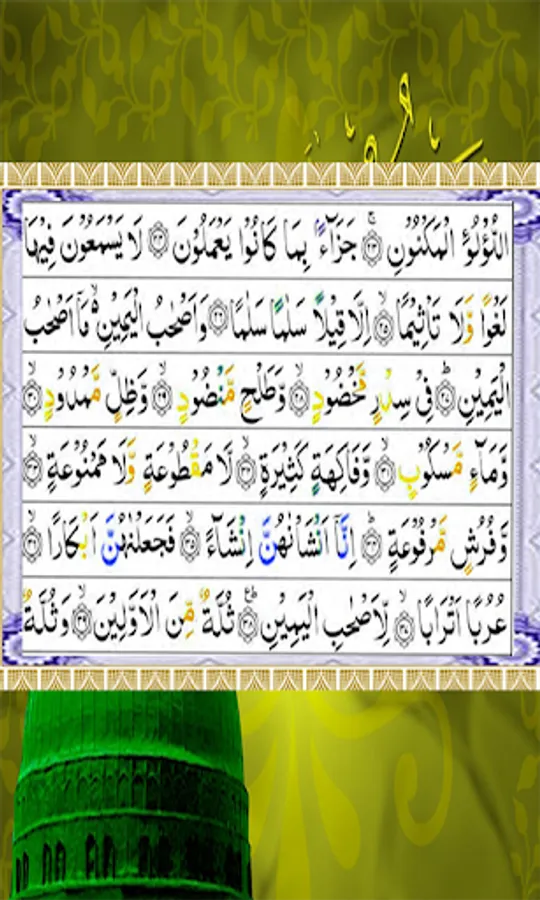 اللُّؤْلُؤِ الْمَكْنُوْنِ ۚ‏﴿۲۳﴾ جَزَآءًۢ بِمَا كَانُوْا يَعْمَلُوْنَ ﴿۲۴﴾ لَا يَسْمَعُوْنَ فِيْهَا
لَغْوًا وَّلَا تَاْثِيْمًا ۙ﴿۲۵﴾ اِلَّا قِيْلًا سَلٰمًا سَلٰمًا ﴿۲۶﴾ وَاَصْحٰبُ الْيَمِيْنِ ۙ۬ مَاۤ اَصْحٰبُ
الْيَمِيْنِ ؕ﴿۲۷﴾ فِيْ سِدْرٍ مَّخْضُوْدٍ ۙ﴿۲۸﴾ وَّطَلْحٍ مَّنْضُوْدٍ ۙ﴿۲۹﴾ وَّظِلٍّ مَّمْدُوْدٍ ۙ﴿۳۰﴾
وَّمَآءٍ مَّسْكُوْبٍ ۙ﴿۳۱﴾ وَّفَاكِهَةٍ كَثِيْرَةٍ ۙ﴿۳۲﴾ لَّا مَقْطُوْعَةٍ وَّلَا مَمْنُوْعَةٍ ۙ﴿۳۳﴾
وَّفُرُشٍ مَّرْفُوْعَةٍ ؕ﴿۳۴﴾ اِنَّاۤ اَنْشَاْنٰهُنَّ اِنْشَآءً ۙ﴿۳۵﴾ فَجَعَلْنٰهُنَّ اَبْكَارًا ۙ﴿۳۶﴾
عُرُبًا اَتْرَابًا ۙ﴿۳۷﴾ لِّاَصْحٰبِ الْيَمِيْنِ ؕ﴿۳۸﴾ ثُلَّةٌ مِّنَ الْاَوَّلِيْنَ ۙ﴿۳۹﴾ وَثُلَّةٌ